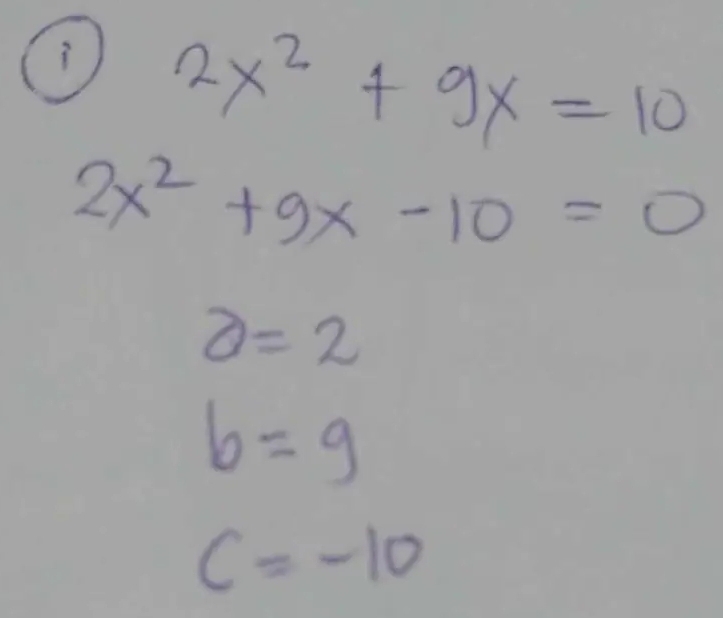 ① 2x² + 9x = 10
2x² + 9x - 10 = 0
a = 2
b = 9
c = -10